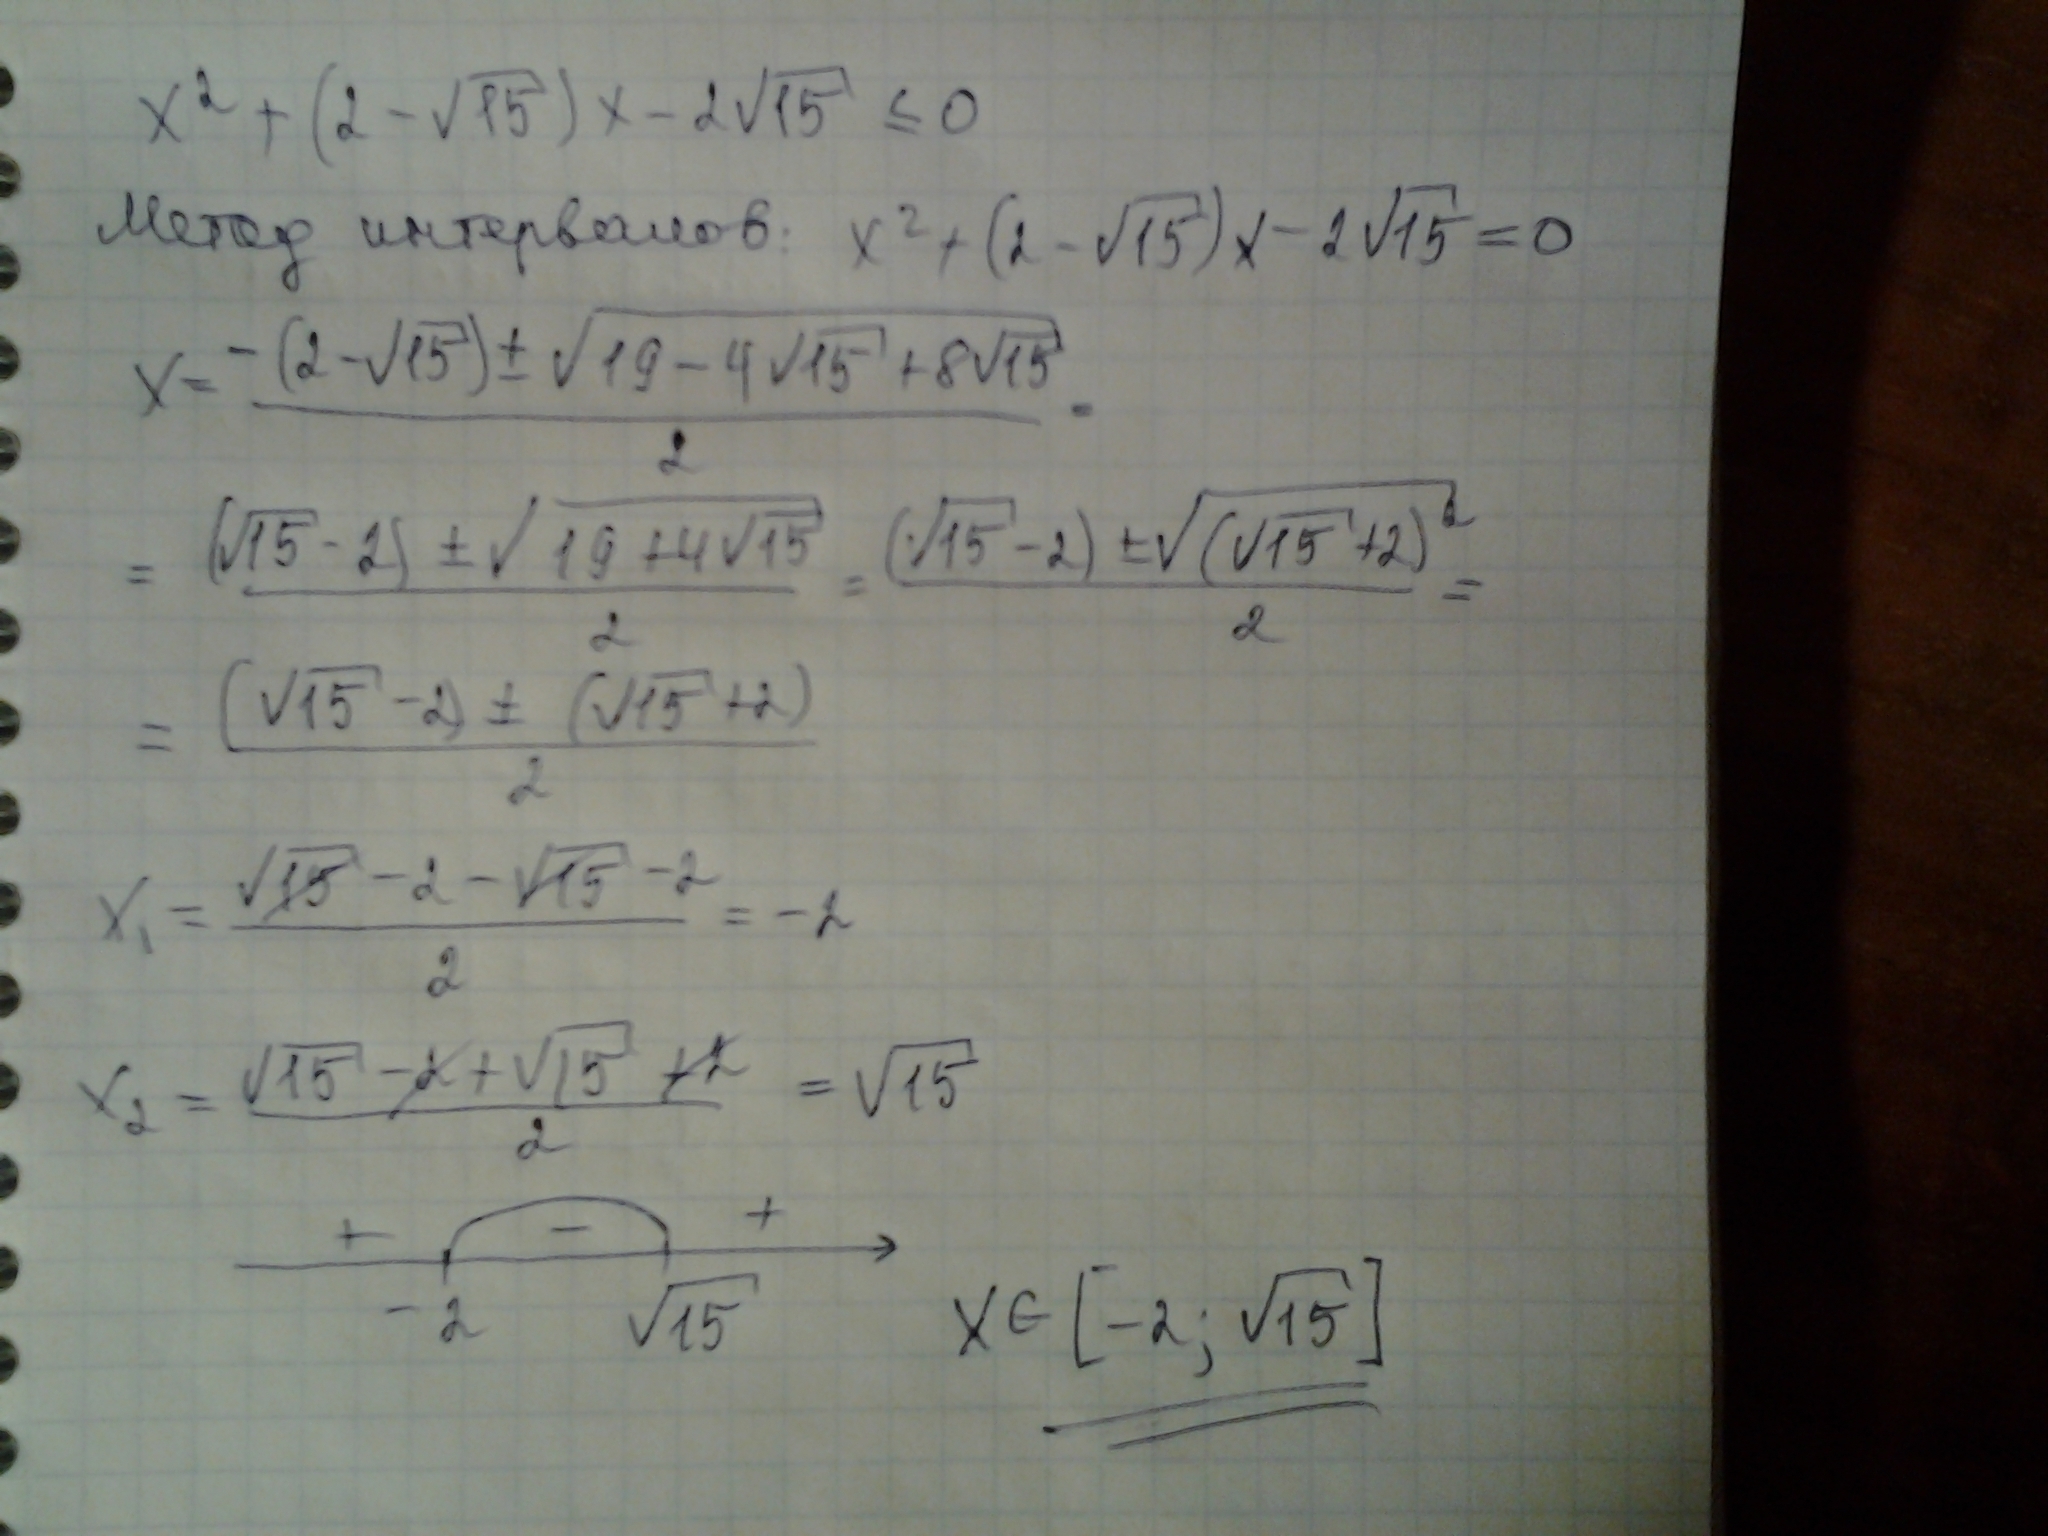 x² + (2 - √15) x - 2√15 ≤ 0
Метод интервалов: x² + (2 - √15) x - 2√15 = 0
x = (-(2 - √15) ± √(19 - 4√15 + 8√15)) / 2 =
= ((√15 - 2) ± √(19 + 4√15)) / 2 = ((√15 - 2) ± √((√15 + 2)²)) / 2 =
= ((√15 - 2) ± (√15 + 2)) / 2
x₁ = (√15 - 2 - √15 - 2) / 2 = -2
x₂ = (√15 - 2 + √15 + 2) / 2 = √15
+ - +
-2 √15
x ∈ [-2; √15]